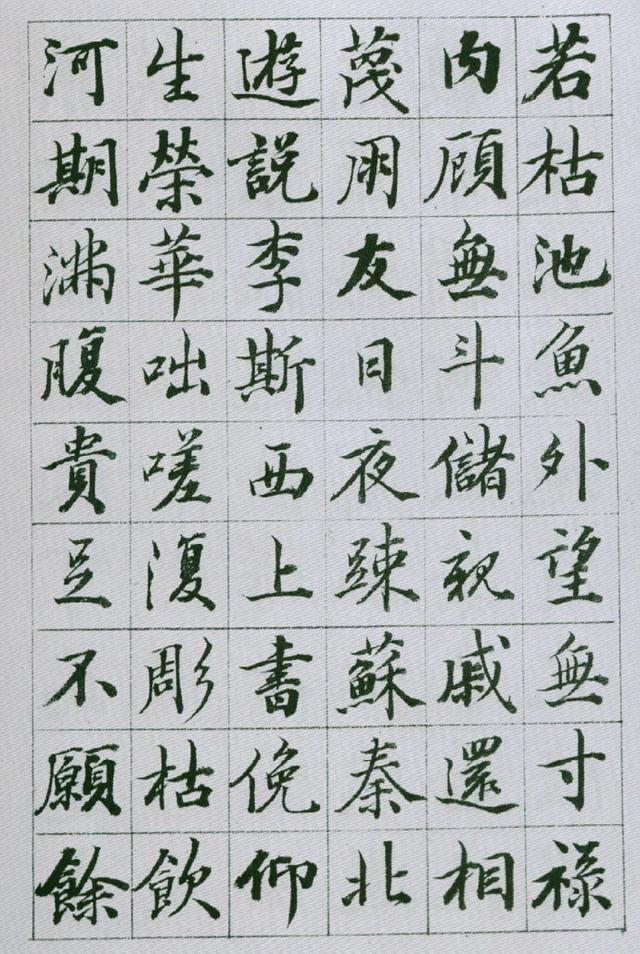 若枯池魚外望無寸禄
内顧無斗儲親戚還相
蔑朋友日夜踈蘇秦北
遊説李斯西上書俛仰
生榮華咄嗟復彫枯飲
河期满腹貴足不願餘